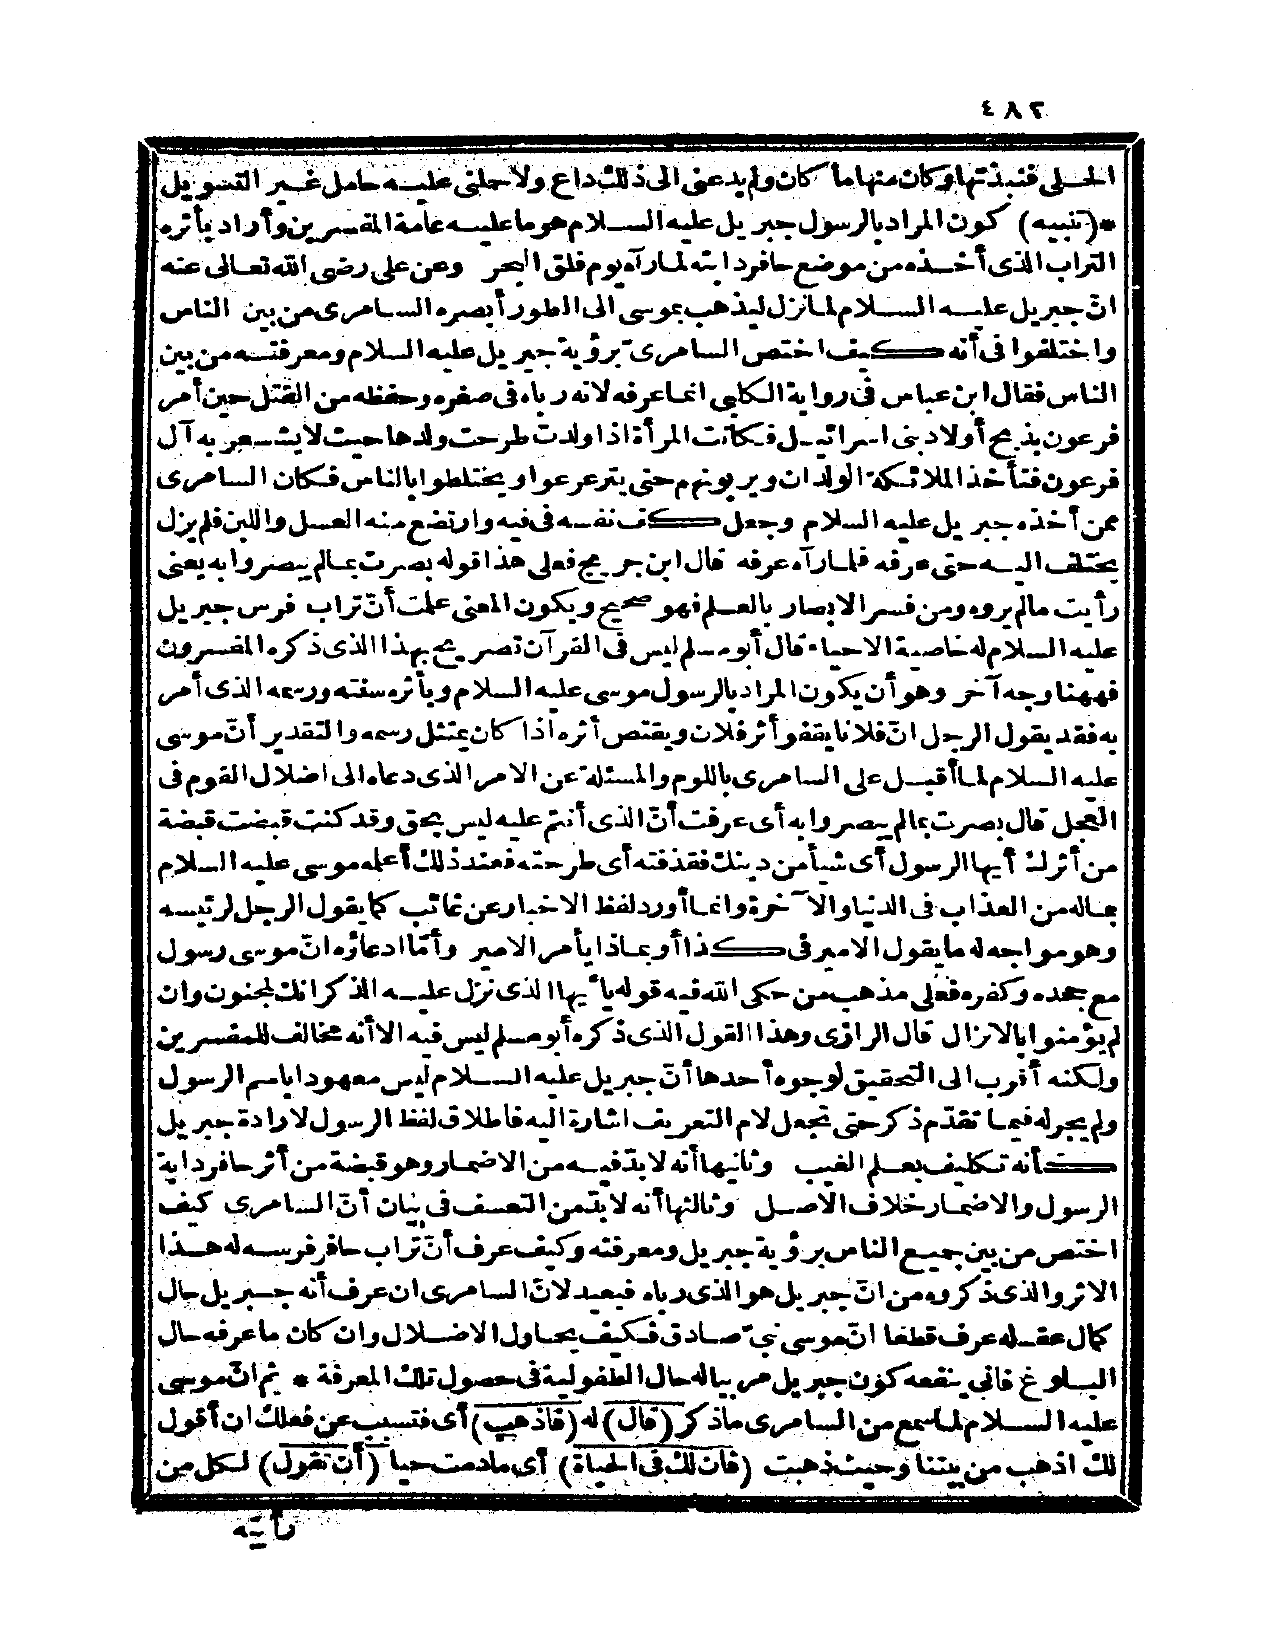 ٤٨٢
الحلى فنبذتها وكان منها ما كان ولم يدعنى الى ذلك داع ولا حملنى عليه حامل غير التسويل
*(تنبيه) كون المراد بالرسول جبريل عليه السلام هو ما عليه عامة المفسرين وأراد بأثره
التراب الذى أخذه من موضع حافر دابته لما رآه يوم فلق البحر وعن على رضى الله تعالى عنه
انّ جبريل عليه السلام لما نزل ليذهب بموسى الى الطور أبصره السامرى من بين الناس
واختلفوا فى أنه كيف اختص السامرىّ برؤية جبريل عليه السلام ومعرفته من بين
الناس فقال ابن عباس فى رواية الكلبى انما عرفه لانه رباه فى صغره وحفظه من القتل حين أمر
فرعون بذبح أولاد بنى اسرائيل فكانت المرأة اذا ولدت طرحت ولدها حيث لا يشعر به آل
فرعون فتأخذ الملائكة الولدان ويربونهم حتى يترعرعوا ويختلطوا بالناس فكان السامرى
ممن أخذه جبريل عليه السلام وجعل كف نفسه فى فيه وارتضع منه العسل واللبن فلم يزل
يختلف اليه حتى عرفه فلما رآه عرفه قال ابن جريج فعلى هذا قوله بصرت بما لم يبصروا به يعنى
رأيت ما لم يروه ومن فسر الابصار بالعلم فهو صحيح ويكون المعنى علمت أنّ تراب فرس جبريل
عليه السلام له خاصية الاحياء قال أبو مسلم ليس فى القرآن تصريح بهذا الذى ذكره المفسرون
فههنا وجه آخر وهو أن يكون المراد بالرسول موسى عليه السلام وبأثره سنته ورسمه الذى أمر
به فقد يقول الرجل انّ فلانا يقفو أثر فلان ويقتص أثره اذا كان يمتثل رسمه والتقدير أنّ موسى
عليه السلام لما أقبل على السامرى باللوم والمسئلة عن الامر الذى دعاه الى اضلال القوم فى
العجل قال بصرت بما لم يبصروا به أى عرفت أنّ الذى أنتم عليه ليس بحق وقد كنت قبضت قبضة
من أثرك أيها الرسول أى شيأ من دينك فقذفته أى طرحته فعند ذلك أعلمه موسى عليه السلام
بماله من العذاب فى الدنيا والآخرة وانما أورد لفظ الاخبار عن غائب كما يقول الرجل لرئيسه
وهو مواجه له ما يقول الامير فى كذا أو بماذا يأمر الامير وأمّا ادعاؤه انّ موسى رسول
مع جحده وكفره فعلى مذهب من حكى الله فيه قوله يا أيها الذى نزل عليه الذكر انك لمجنون وان
لم يؤمنوا بالانزال قال الرازى وهذا القول الذى ذكره أبو مسلم ليس فيه الا أنه مخالف للمفسرين
ولكنه أقرب الى التحقيق لوجوه أحدها أنّ جبريل عليه السلام ليس معهودا باسم الرسول
ولم يجر له فيما تقدّم ذكر حتى تجعل لام التعريف اشارة اليه فاطلاق لفظ الرسول لارادة جبريل
كأنه تكليف بعلم الغيب وثانيها أنه لا بدّ فيه من الاضمار وهو قبضة من أثر حافر دابة
الرسول والاضمار خلاف الاصل وثالثها أنه لا بدّ من التعسف فى بيان أنّ السامرى كيف
اختص من بين جميع الناس برؤية جبريل ومعرفته وكيف عرف أنّ تراب حافر فرسه له هذا
الاثر والذى ذكروه من انّ جبريل هو الذى رباه فبعيد لانّ السامرى ان عرف أنه جبريل حال
كمال عقله عرف قطعا انّ موسى نبىّ صادق فكيف يحاول الاضلال وان كان ما عرفه حال
البلوغ فانى ينفعه كون جبريل مربيا له حال الطفولية فى حصول تلك المعرفة * ثم انّ موسى
عليه السلام لما سمع من السامرى ما ذكر (قال) له (فاذهب) أى فتسبب عن فعلك ان أقول
لك اذهب من بيننا وحيث ذهبت (فان لك فى الحياة) أى ما دمت حيا (أن تقول) لكل من